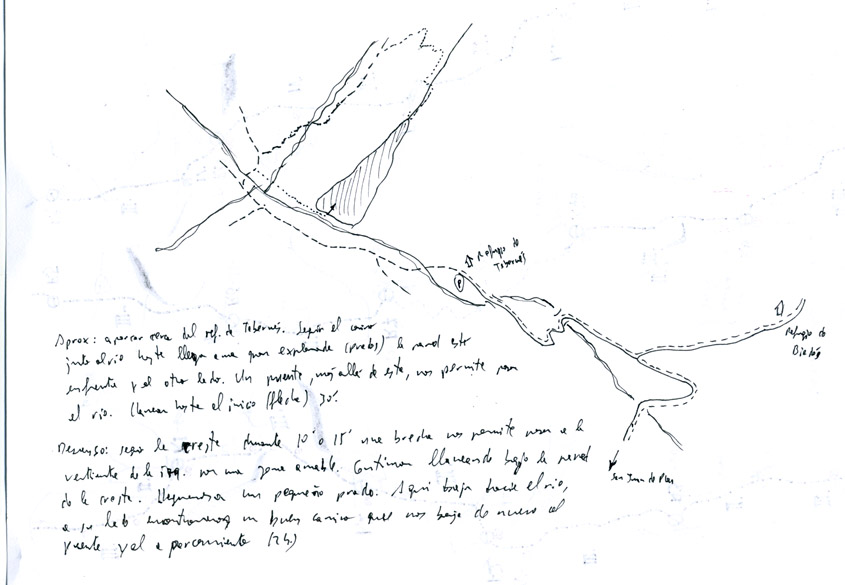 Refugio de
Tabernés
P
Refugio de
Biadós
San Juan de Plan
Aprox: aparcar cerca del ref. de Tabernés. Seguir el camino
junto al rio hasta llegar a una gran explanada (prados) la pared esta
enfrente y al otro lado. Un puente, más alla de esta, nos permite pasar
el rio. llanear hasta el inicio (flecha) 30'.
Descenso: seguir la cresta durante 10' o 15' una brecha nos permite pasar a la
vertiente de la izq. por una zona amable. Continuar llaneando bajo la pared
de la cresta. Llegaremos a un pequeño prado. Aqui bajar hacia el rio,
a su lado encontraremos un buen camino que nos baja de nuevo al
puente y al aparcamiento (2h.)